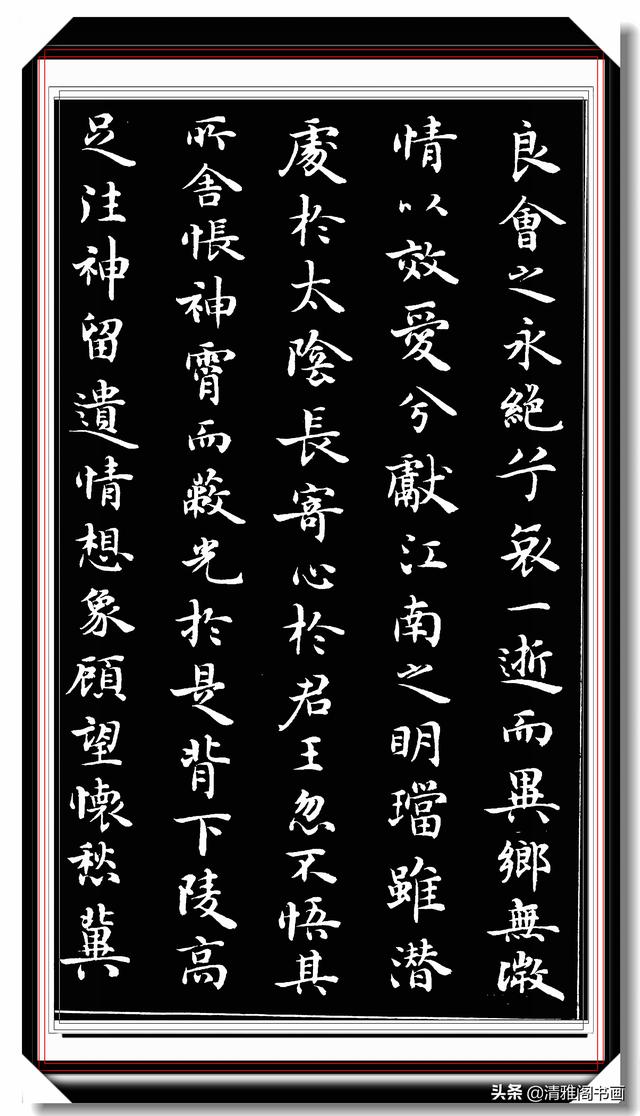 良會之永絕兮哀一逝而異鄉無微
情以效愛兮獻江南之明璫雖潜
處於太陰長寄心於君王忽不悟其
所舍悵神霄而蔽光於是背下陵高
足往神留遺情想象顧望懷愁冀
头条 @清雅阁书画